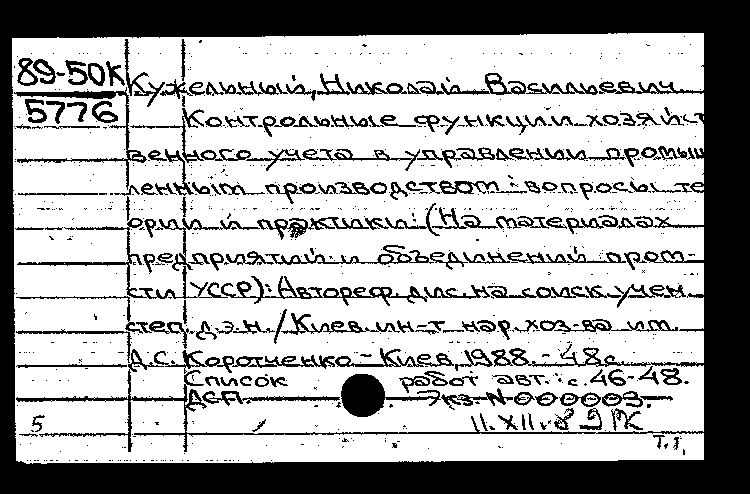 89-50К
5776
Кужельный, Николай Васильевич.
Контрольные функции хозяйст
венного учета в управлении промыш
ленным производством: вопросы те
ории и практики: (На материалах
предприятий и объединений пром-
сти УССР): Автореф. дис. на соиск. учен.
степ. д.э.н. / Киев. ин-т нар. хоз-ва им.
Д.С. Коротченко - Киев, 1988. - 48с.
Список работ авт.: с. 46-48.
ДСП. Экз. N 000003.
11.XII.89
5
Т.Т.